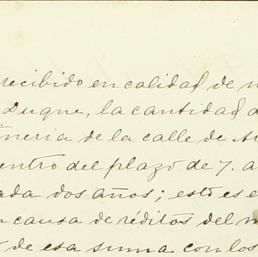 recibido en calidad de
Duque, la cantidad
de la calle de
entro del plazo de 7. a
ada dos años; esto es e
causa de réditos del
de esa suma con los